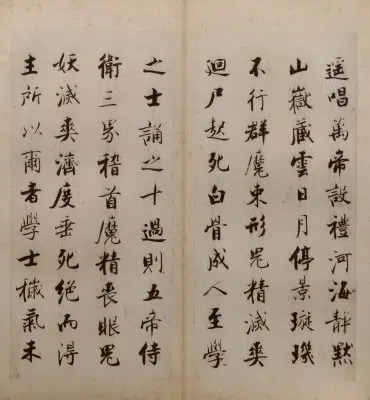 遥唱萬帝設禮河海靜默
山嶽藏雲日月停景璇璣
不行群魔束形鬼精滅爽
迴尸起死白骨成人至學
之士誦之十過則五帝侍
衛三界稽首魔精喪眼鬼
妖滅爽濟度垂死絕而得
生所以爾者學士穢氣未